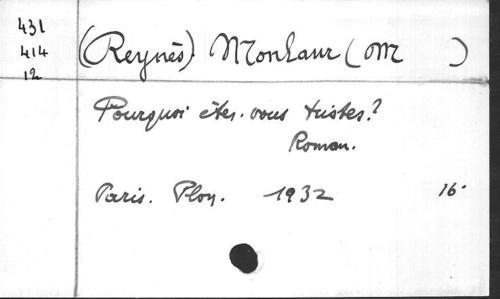 431
414
12
(Reynès) Monlaur (M )
Pourquoi êtes-vous tristes?
Roman.
Paris. Plon. 1932 16°